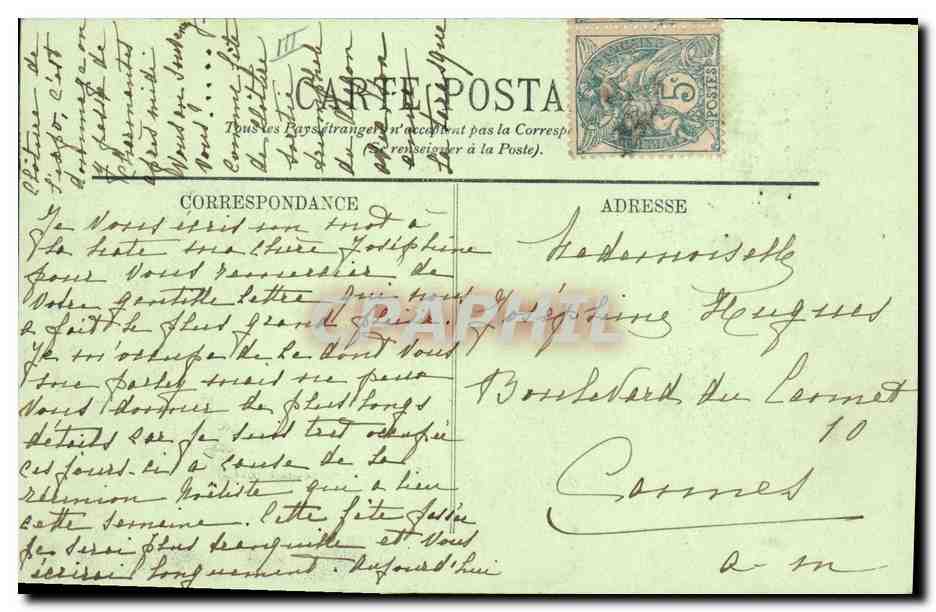 III
CARTE POSTA
Tous les Pays étrangers n'acceptent pas la Corresp
(Se renseigner à la Poste).
5c
POSTES
CORRESPONDANCE
Je vous écris un mot à
la hate ma chère Joséphine
pour vous remercier de
votre gentille lettre qui nous
a fait le plus grand plaisir.
Je m'occupe de ce dont vous
me parlez mais ne peux
vous donner de plus longs
détails car je suis tres occupée
ces jours-ci a cause de la
réunion Noëliste qui a lieu
cette semaine. Cette fête passée
je serai plus tranquille et vous
écrirai longuement. Aujourd'hui
clôture de
c'est
dommage on
y passe de
charmantes
après midi
vous
vous....
comme fête
de clôture
de
la tarasque
ADRESSE
Mademoiselle
Joséphine Hugues
Boulevard du Cannet
10
Cannes
a-m
CPAPHIL